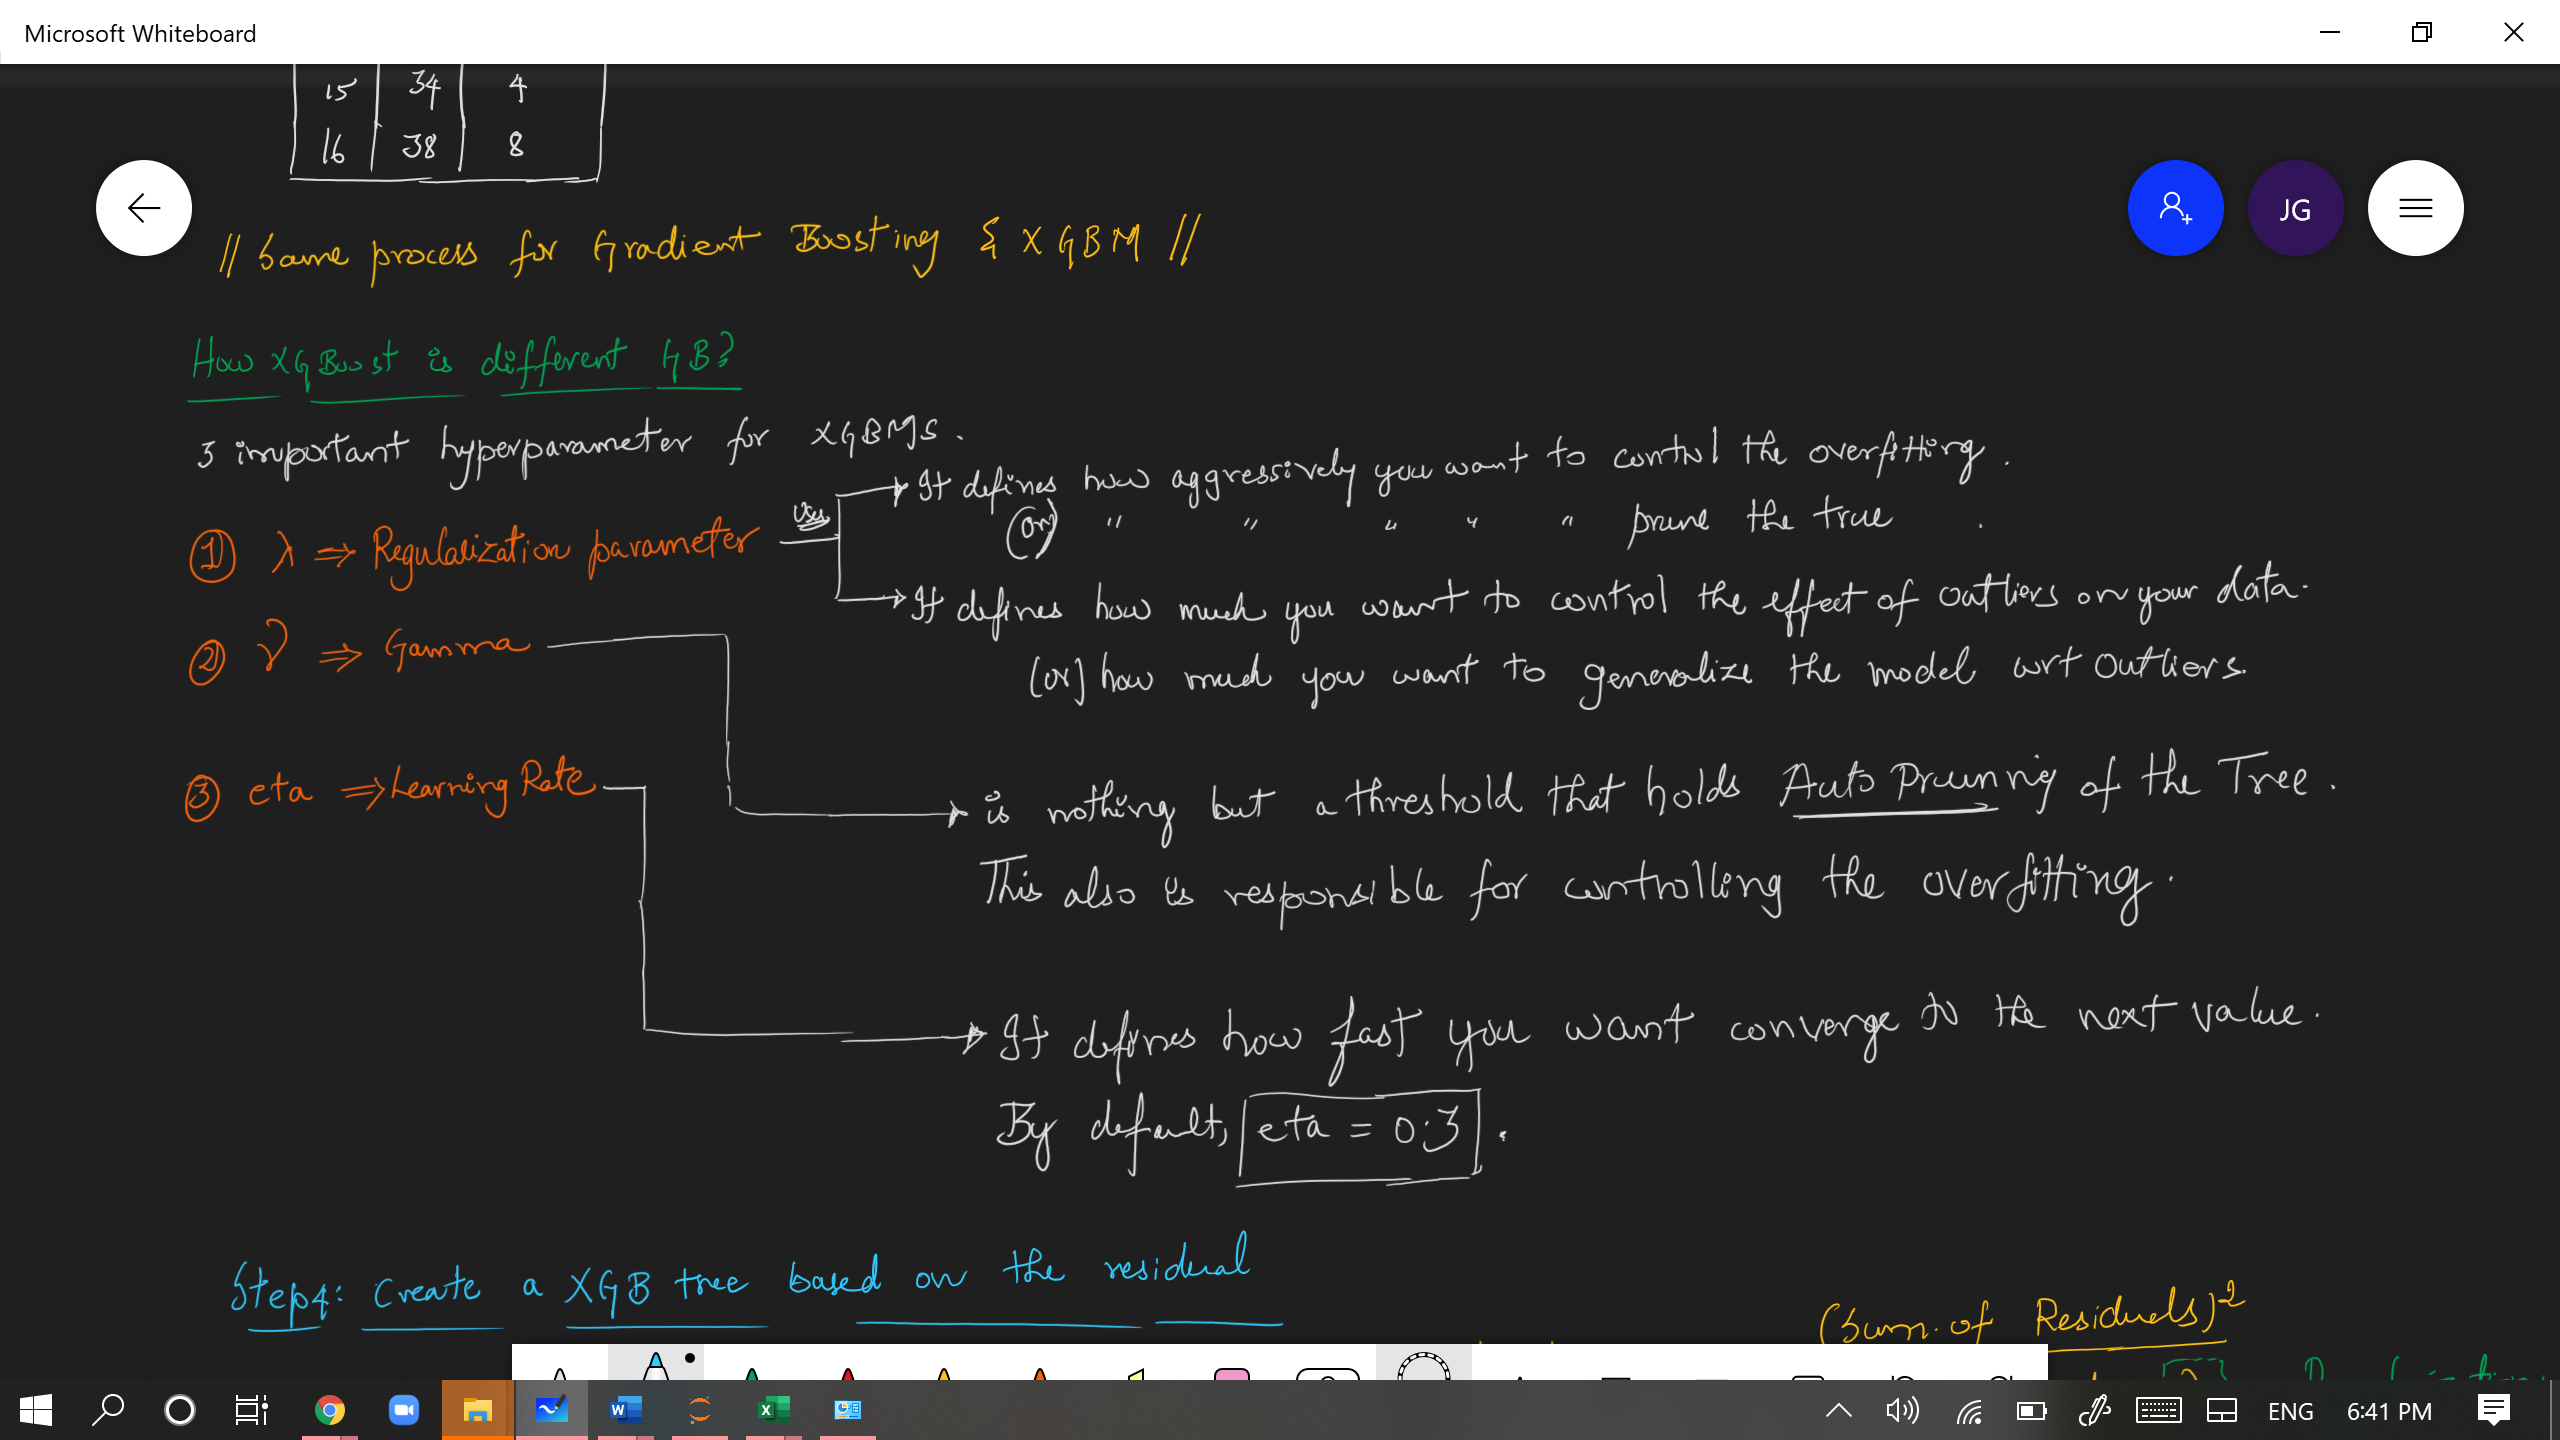 Microsoft Whiteboard
15 34 4
16 38 8
JG
// Same process for Gradient Boosting & XGBM //
How XGBoost is different GB?
3 important hyperparameter for XGBMs.
① λ ⇒ Regularization parameter
Uses
It defines how aggressively you want to control the overfitting.
(or) " " " " " prune the true .
It defines how much you want to control the effect of outliers on your data.
[or] how much you want to generalize the model wrt Outliers.
② γ ⇒ Gamma
is nothing but a threshold that holds Auto Prunning of the Tree.
This also is responsible for controlling the overfitting.
③ eta ⇒ Learning Rate
It defines how fast you want converge to the next value.
By default, eta = 0.3.
Step4: Create a XGB tree based on the residual
(Sum of Residuals)²
ENG 6:41 PM